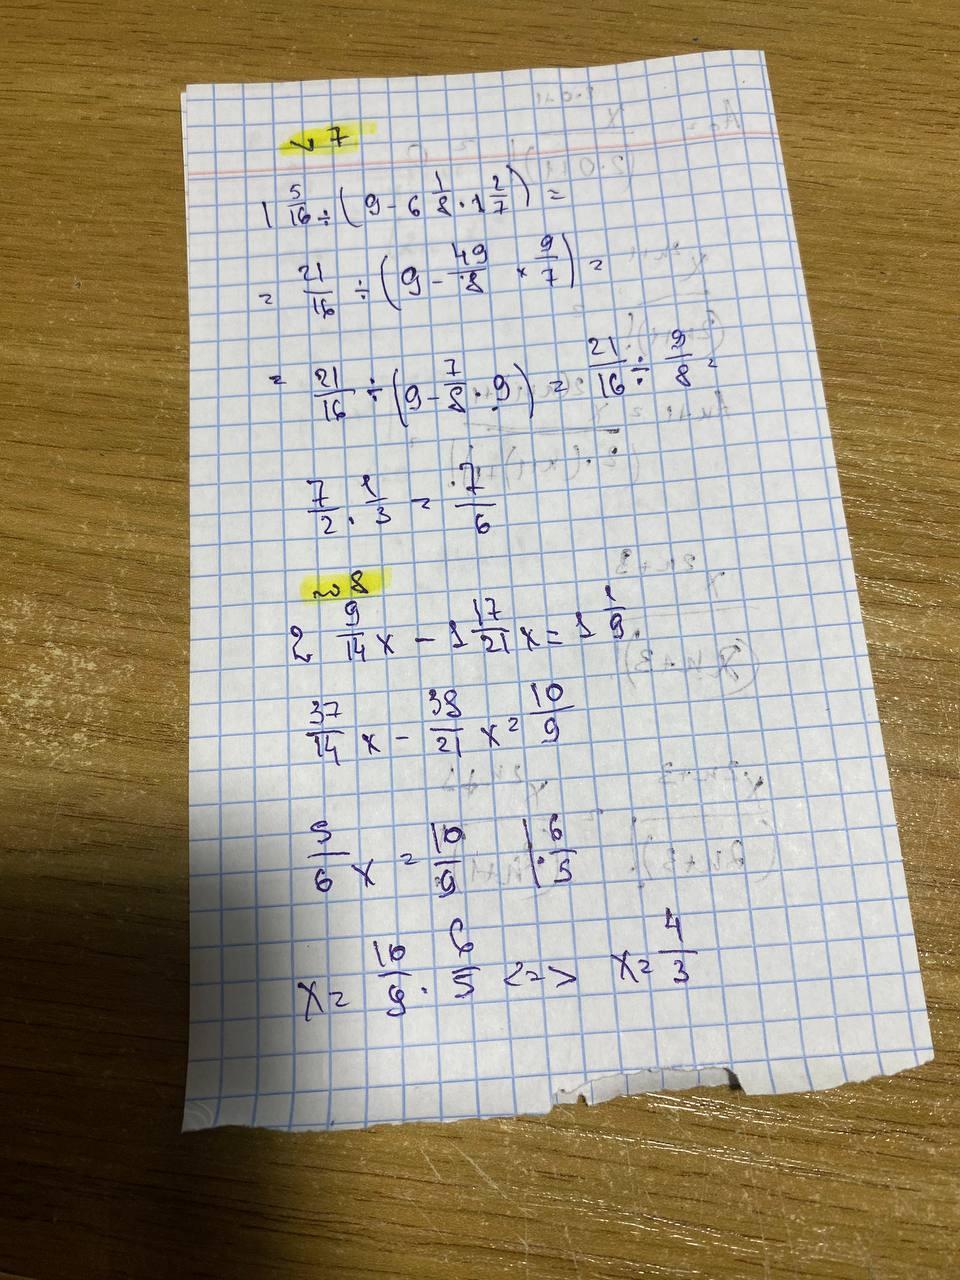 № 7
1 5/16 ÷ (9 - 6 1/8 · 1 2/7) =
= 21/16 ÷ (9 - 49/8 × 9/7) =
= 21/16 ÷ (9 - 7/8 · 9) = 21/16 ÷ 9/8 =
7/2 · 1/3 = 7/6
№ 8
2 9/14 x - 1 17/21 x = 1 1/9
37/14 x - 38/21 x = 10/9
5/6 x = 10/9 | · 6/5
x = 10/9 · 6/5 <=> x = 4/3